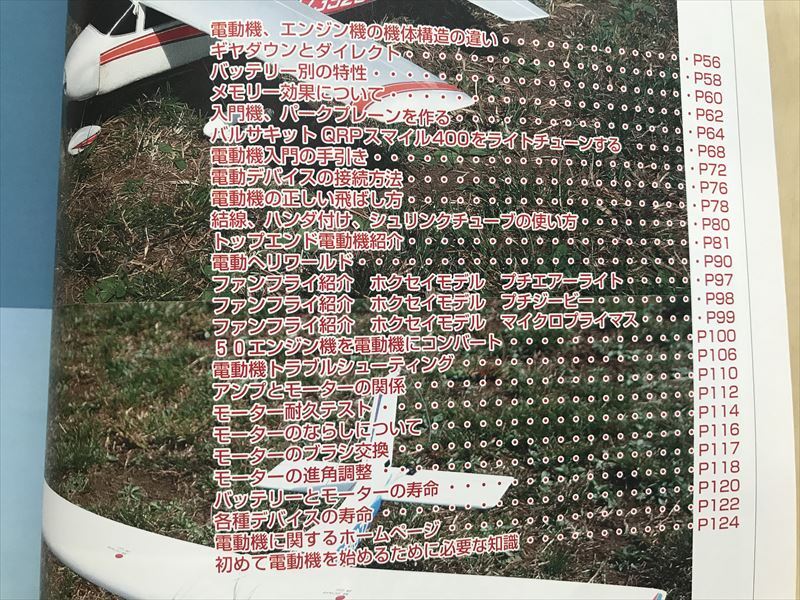 電動機、エンジン機の機体構造の違い・・・・・・・・・・・・P56
ギヤダウンとダイレクト・・・・・・・・・・・・P58
バッテリー別の特性・・・・・・・・・・・・P60
メモリー効果について・・・・・・・・・・・・P62
入門機、パークプレーンを作る・・・・・・・・・・・・P64
バルサキット QRPスマイル400をライトチューンする・・・・P68
電動機入門の手引き・・・・・・・・・・・・P72
電動デバイスの接続方法・・・・・・・・・・・・P76
電動機の正しい飛ばし方・・・・・・・・・・・・P78
結線、ハンダ付け、シュリンクチューブの使い方・・・・・・P80
トップエンド電動機紹介・・・・・・・・・・・・P81
電動ヘリワールド・・・・・・・・・・・・P90
ファンフライ紹介　ホクセイモデル　プチエアーライト・・・・P97
ファンフライ紹介　ホクセイモデル　プチジービー・・・・・P98
ファンフライ紹介　ホクセイモデル　マイクロプライマス・・・P99
50エンジン機を電動機にコンバート・・・・・・・・・・P100
電動機トラブルシューティング・・・・・・・・・・・・P106
アンプとモーターの関係・・・・・・・・・・・・P110
モーター耐久テスト・・・・・・・・・・・・P112
モーターのならしについて・・・・・・・・・・・・P114
モーターのブラシ交換・・・・・・・・・・・・P116
モーターの進角調整・・・・・・・・・・・・P117
バッテリーとモーターの寿命・・・・・・・・・・・・P118
各種デバイスの寿命・・・・・・・・・・・・P120
電動機に関するホームページ・・・・・・・・・・・・P122
初めて電動機を始めるために必要な知識・・・・・・・・・P124